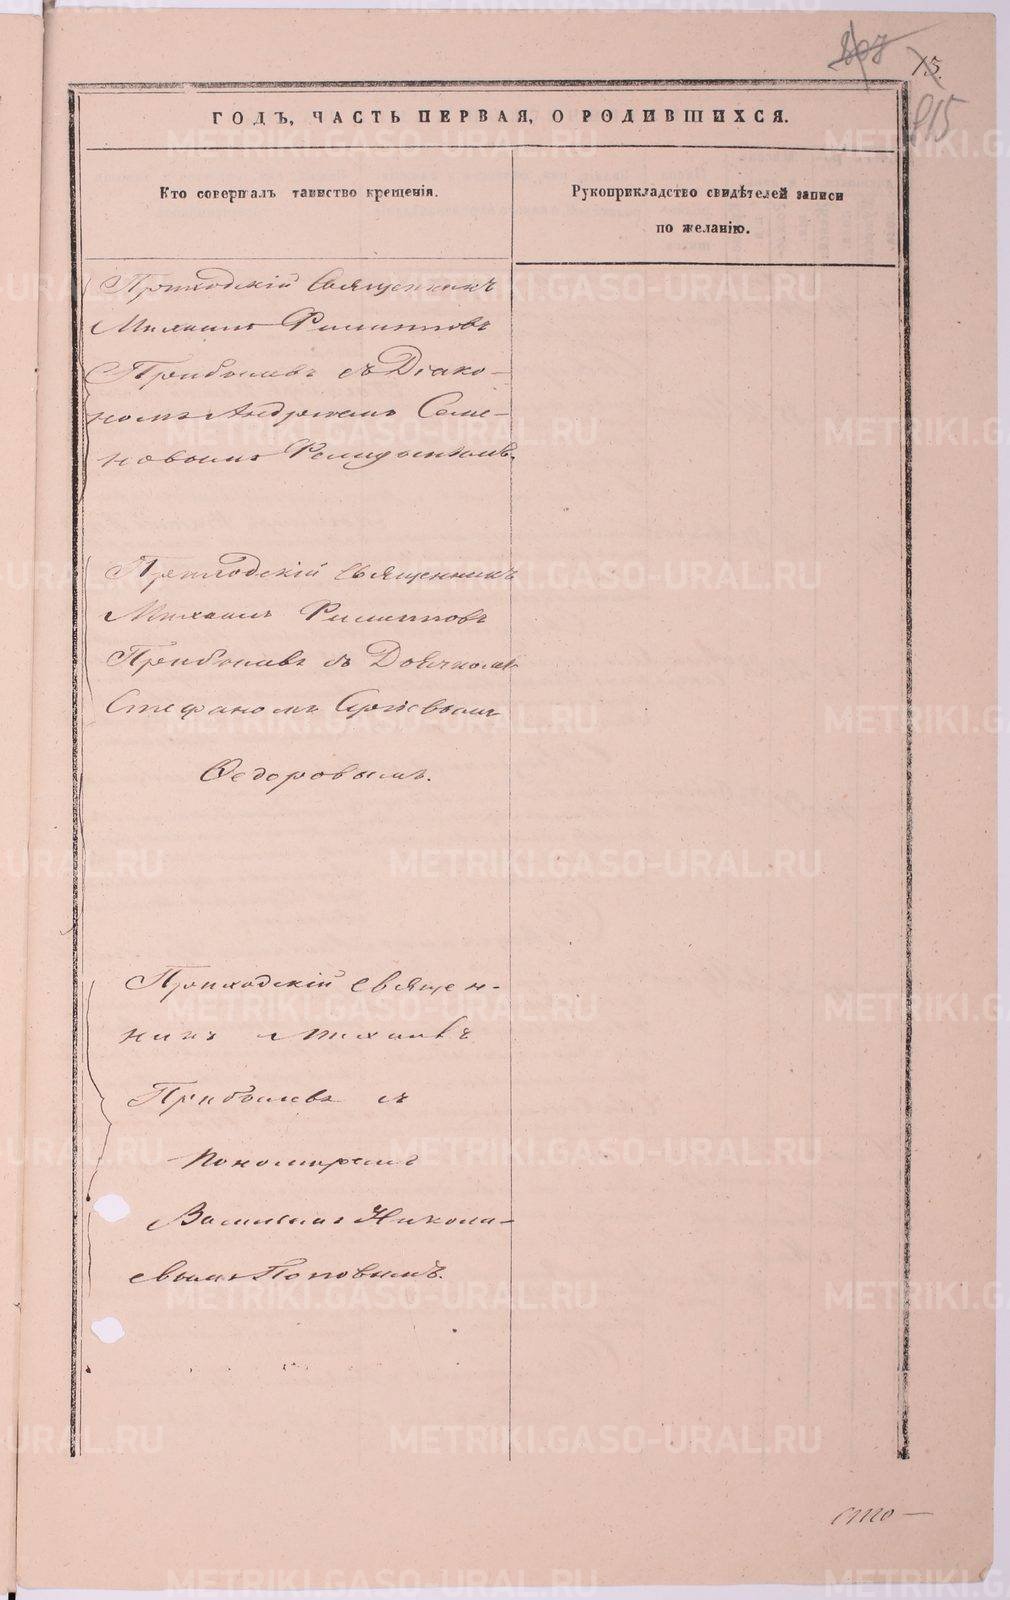 15.
815
ГОДЪ, ЧАСТЬ ПЕРВАЯ, О РОДИВШИХСЯ.
Кто совершалъ таинство крещенія.
Рукоприкладство свидѣтелей записи
по желанію.
Приходскій Священникъ
Михаилъ Филипповъ
Прибылевъ съ Діако-
номъ Андреемъ Семе-
новымъ
Приходскій Священникъ
Михаилъ Филипповъ
Прибылевъ съ Дьячкомъ
Стефаномъ
Ѳедоровымъ.
Приходскій Священ-
никъ Михаилъ
Прибылевъ съ
Пономаремъ
Василіемъ Никола-
евымъ Поповымъ.
сто—
METRIKI.GASO-URAL.RU